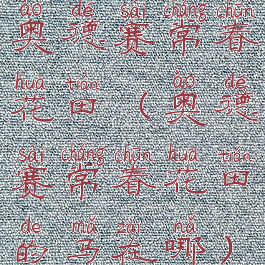 ào dé sài cháng chūn
奥德赛常春
huā tián ào dé
花田（奥德
sài cháng chūn huā tián
赛常春花田
de mǎ zài nǎ
的马在哪）